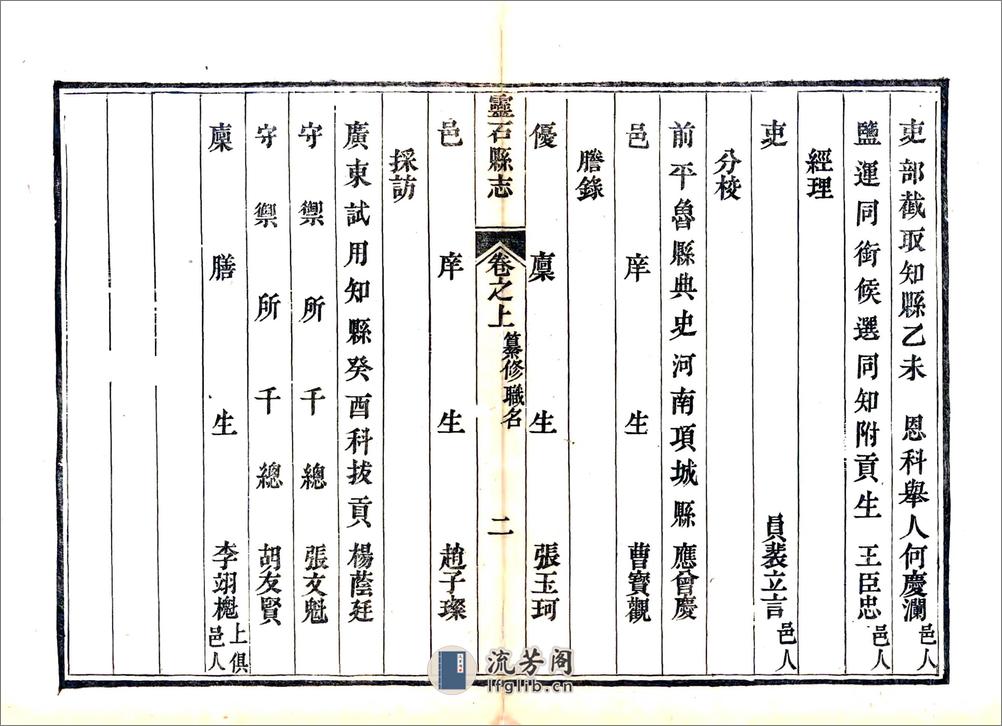 吏部截取知縣乙未　恩科舉人何慶瀾邑人
鹽運同銜候選同知附貢生　王臣忠邑人
經理
吏　員裴立言邑人
分校
前平魯縣典史河南項城縣　應曾慶
邑庠生　曹寶觀
謄錄
優廩生　張玉珂
靈石縣志　卷之上　纂修職名　二
邑庠生　趙子璨
採訪
廣東試用知縣癸酉科拔貢　楊蔭廷
守禦所千總　張文魁
守禦所千總　胡友賢
廩膳生　李翊櫆上俱邑人
流芳阁
lfglib.cn